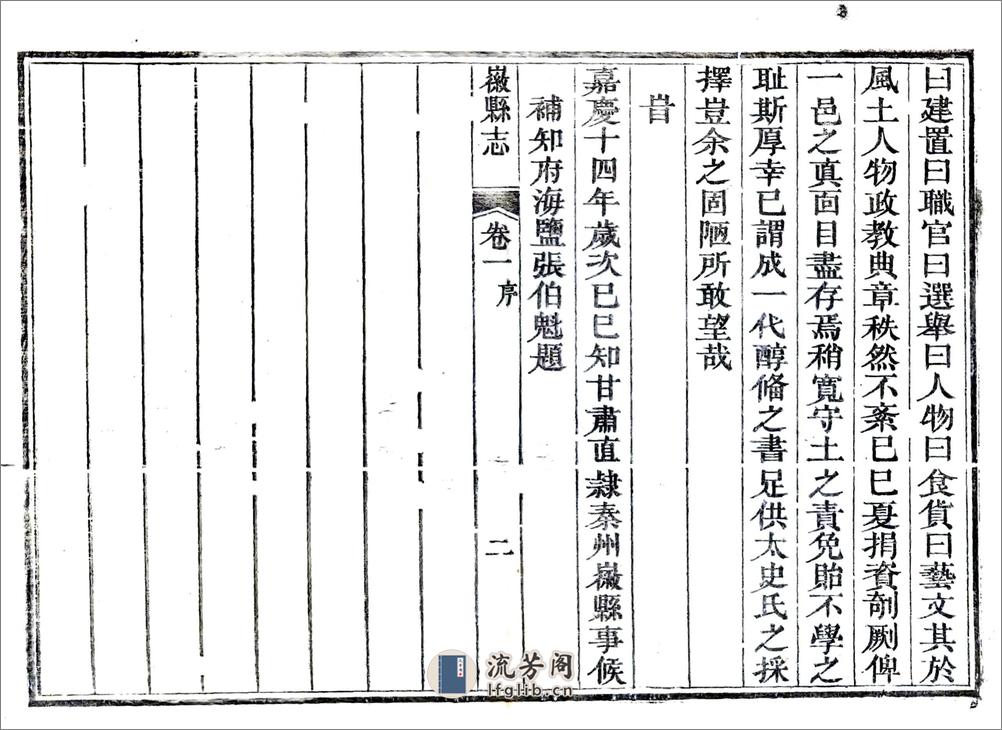 曰建置曰職官曰選舉曰人物曰食貨曰藝文其於
風土人物政教典章秩然不紊巳巳夏捐資剞劂俾
一邑之真面目盡存焉稍寬守土之責免貽不學之
耻斯厚幸巳謂成一代醇偹之書足供太史氏之採
擇豈余之固陋所敢望哉
旹
嘉慶十四年歲次巳巳知甘肅直隸秦州徽縣事候
補知府海鹽張伯魁題
徽縣志
卷一
序
二
流芳阁
lfglib.cn